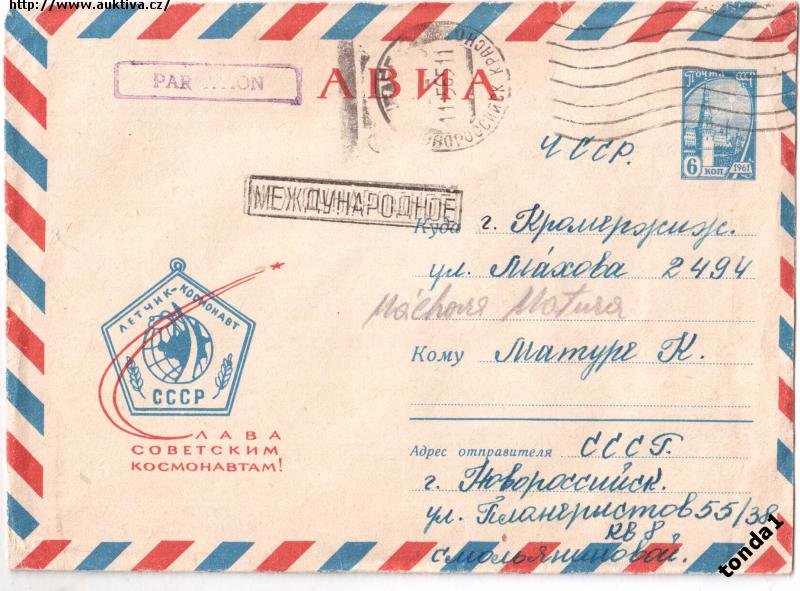 http://www.auktiva.cz/
PAR AVION
АВИА
НОВОРОССИЙСК КРАСНО
Почта СССР
6 коп 1961
Ч ССР.
МЕЖДУНАРОДНОЕ
Куда г. Кромержиж.
ул. Махова 2494
Máchova Matura
Кому Матуре К.
ЛЕТЧИК-КОСМОНАВТ
СССР
СЛАВА
СОВЕТСКИМ
КОСМОНАВТАМ!
Адрес отправителя СССР.
г. Новороссийск.
ул. Планеристов 55/38
кв 8
Смольяниновой.
tonda1